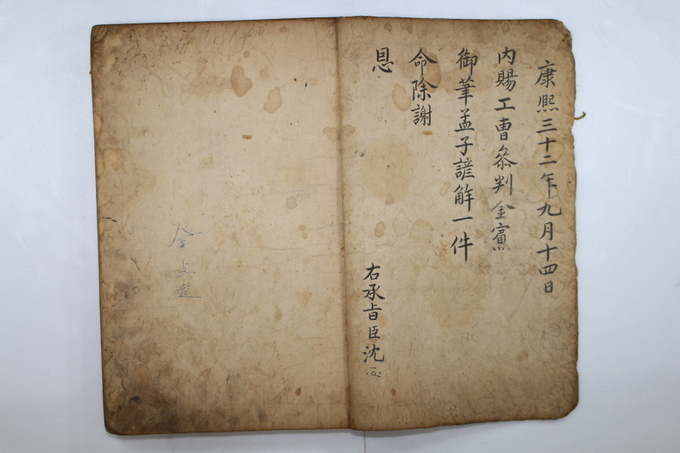 康熙三十二年九月十四日
內賜工曹叅判金賓
御筆孟子諺解一件
命除謝
恩
右承旨臣沈